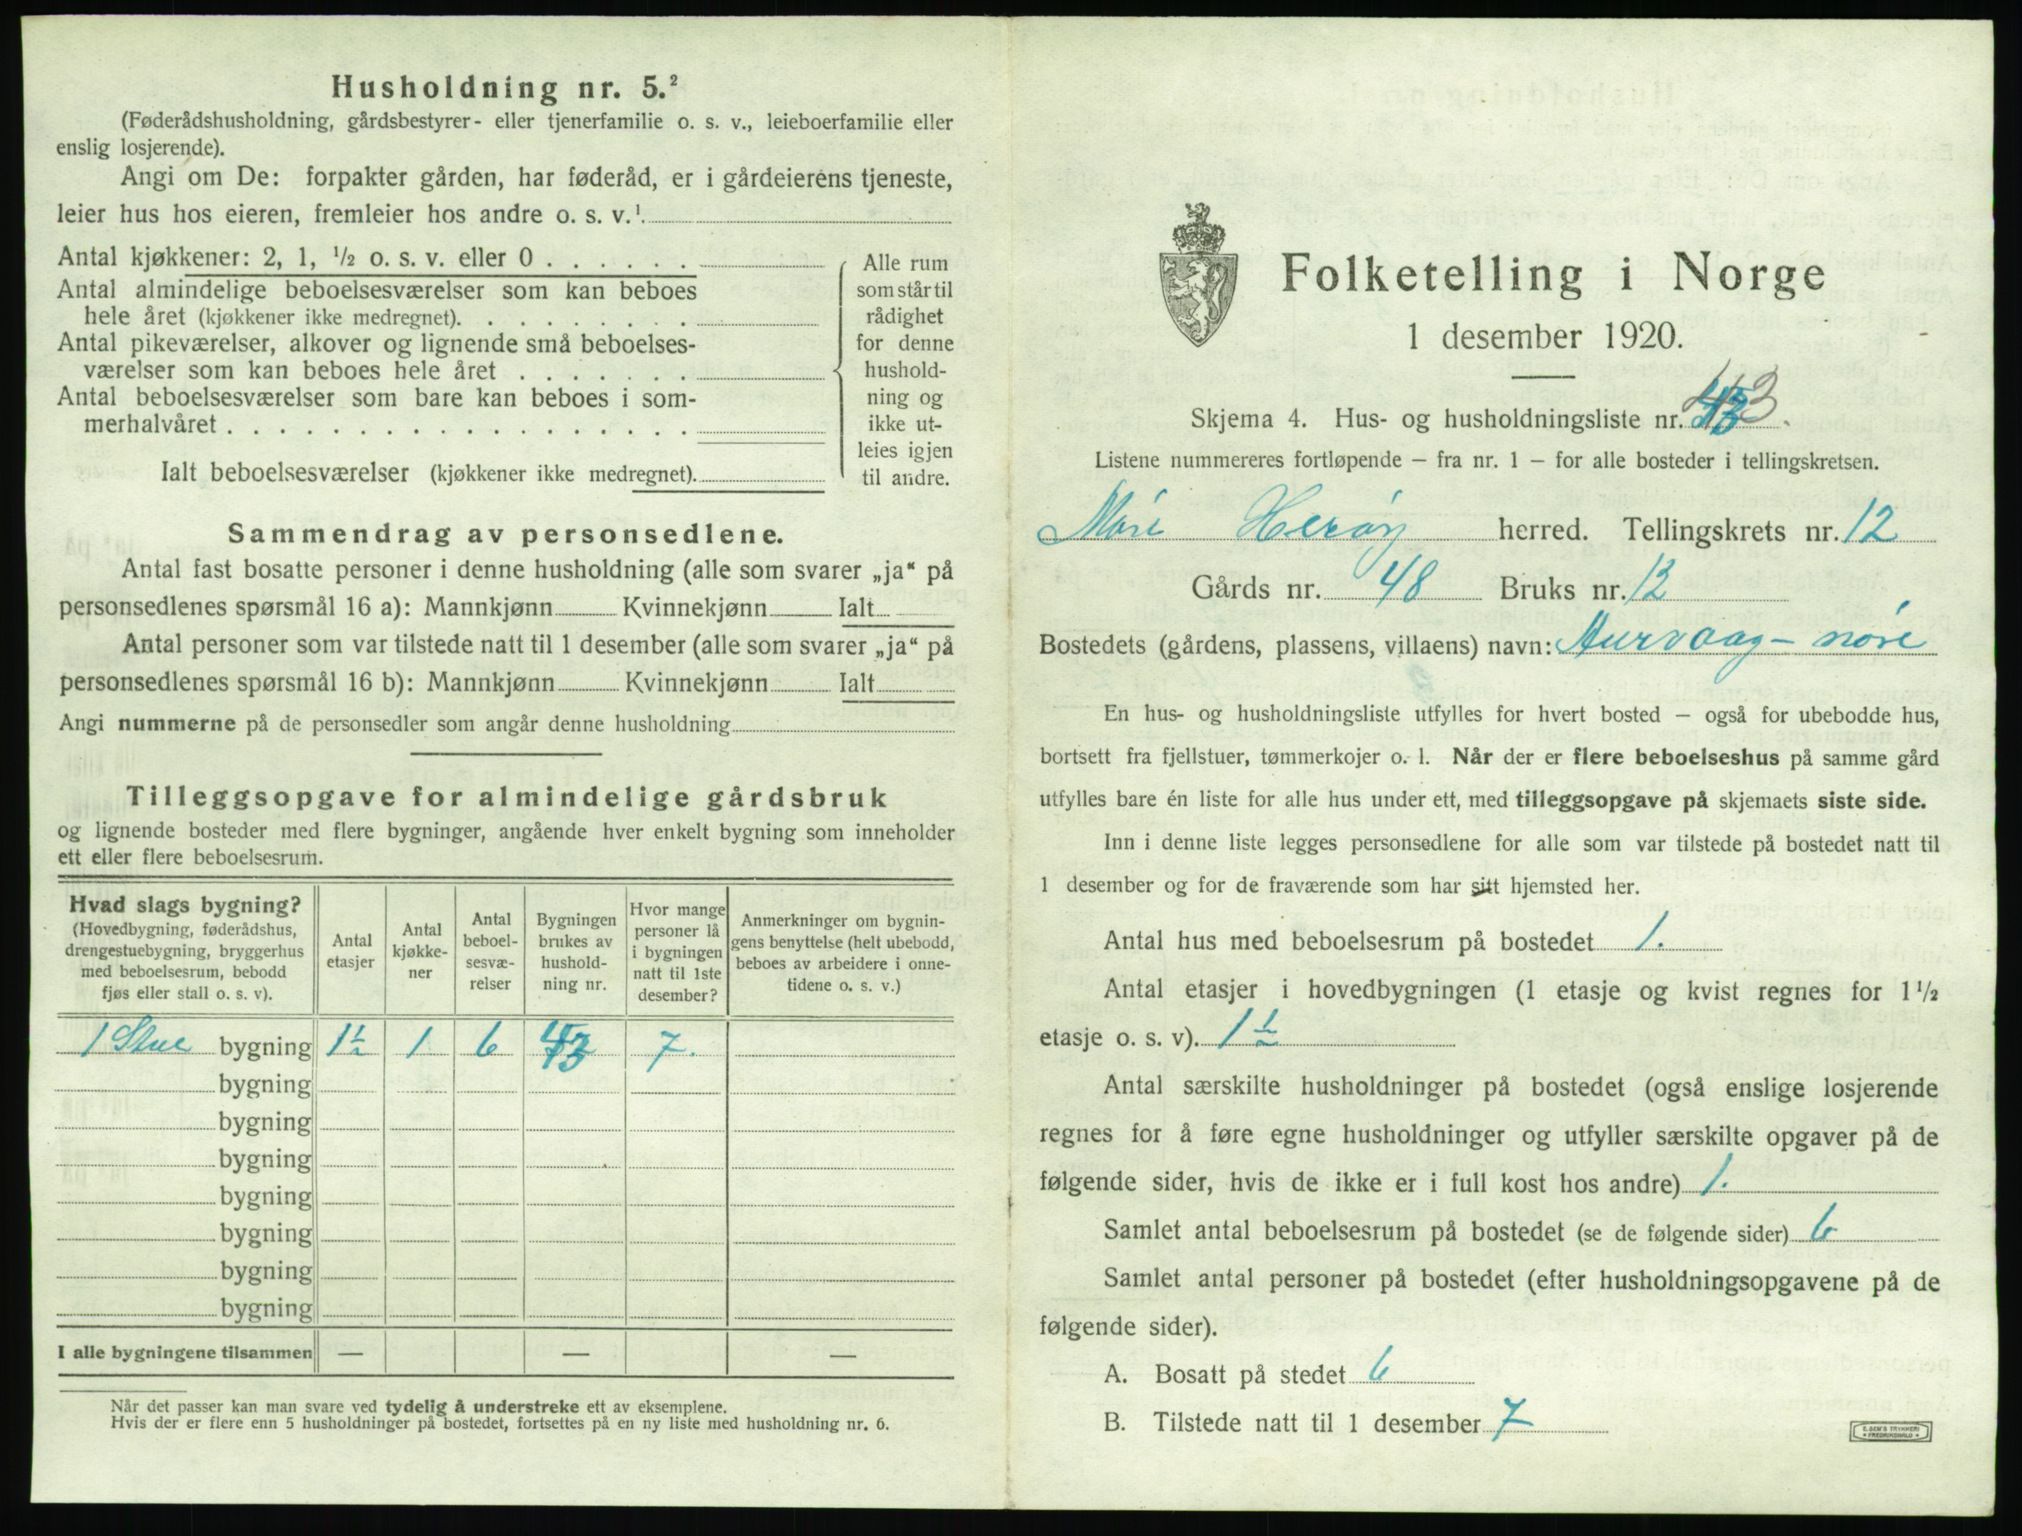 Husholdning nr. 5.²
(Føderådshusholdning, gårdsbestyrer- eller tjenerfamilie o. s. v., leieboerfamilie eller
enslig losjerende).
Angi om De: forpakter gården, har føderåd, er i gårdeierens tjeneste,
leier hus hos eieren, fremleier hos andre o. s. v.¹
Antal kjøkkener: 2, 1, ½ o. s. v. eller 0 . . . . . .
Antal almindelige beboelsesværelser som kan beboes
hele året (kjøkkener ikke medregnet). . . . . . . . .
Antal pikeværelser, alkover og lignende små beboelses-
værelser som kan beboes hele året . . . . . . .
Antal beboelsesværelser som bare kan beboes i som-
merhalvåret . . . . . . . . . . . . . . . . . .
Ialt beboelsesværelser (kjøkkener ikke medregnet).
Alle rum
som står til
rådighet
for denne
hushold-
ning og
ikke ut-
leies igjen
til andre.
Sammendrag av personsedlene.
Antal fast bosatte personer i denne husholdning (alle som svarer „ja“ på
personsedlenes spørsmål 16 a): Mannkjønn Kvinnekjønn Ialt
Antal personer som var tilstede natt til 1 desember (alle som svarer „ja“ på
personsedlenes spørsmål 16 b): Mannkjønn Kvinnekjønn Ialt
Angi nummerne på de personsedler som angår denne husholdning
Tilleggsopgave for almindelige gårdsbruk
og lignende bosteder med flere bygninger, angående hver enkelt bygning som inneholder
ett eller flere beboelsesrum.
Hvad slags bygning?
(Hovedbygning, føderådshus,
drengestuebygning, bryggerhus
med beboelsesrum, bebodd
fjøs eller stall o. s. v).
Antal
etasjer
Antal
kjøkke-
ner
Antal
beboel-
sesvæ-
relser
Bygningen
brukes av
hushold-
ning nr.
Hvor mange
personer lå
i bygningen
natt til 1ste
desember?
Anmerkninger om bygnin-
gens benyttelse (helt ubebodd,
beboes av arbeidere i onne-
tidene o. s. v.)
1 Stue bygning 1½ 1 6 43 7.
bygning
bygning
bygning
bygning
bygning
bygning
bygning
I alle bygningene tilsammen — — —
Når det passer kan man svare ved tydelig å understreke ett av eksemplene.
Hvis der er flere enn 5 husholdninger på bostedet, fortsettes på en ny liste med husholdning nr. 6.
Folketelling i Norge
1 desember 1920.
Skjema 4. Hus- og husholdningsliste nr. 43
Listene nummereres fortløpende — fra nr. 1 — for alle bosteder i tellingskretsen.
Møre Herøy herred. Tellingskrets nr. 12
Gårds nr. 48 Bruks nr. 12
Bostedets (gårdens, plassens, villaens) navn: Aurvaag - nøre
En hus- og husholdningsliste utfylles for hvert bosted — også for ubebodde hus,
bortsett fra fjellstuer, tømmerkojer o. l. Når der er flere beboelseshus på samme gård
utfylles bare én liste for alle hus under ett, med tilleggsopgave på skjemaets siste side.
Inn i denne liste legges personsedlene for alle som var tilstede på bostedet natt til
1 desember og for de fraværende som har sitt hjemsted her.
Antal hus med beboelsesrum på bostedet 1.
Antal etasjer i hovedbygningen (1 etasje og kvist regnes for 1½
etasje o. s. v). 1½
Antal særskilte husholdninger på bostedet (også enslige losjerende
regnes for å føre egne husholdninger og utfyller særskilte opgaver på de
følgende sider, hvis de ikke er i full kost hos andre) 1.
Samlet antal beboelsesrum på bostedet (se de følgende sider) 6
Samlet antal personer på bostedet (efter husholdningsopgavene på de
følgende sider).
A. Bosatt på stedet 6
B. Tilstede natt til 1 desember 7
E. SEM'S TRYKKERI
FREDRIKSHALD